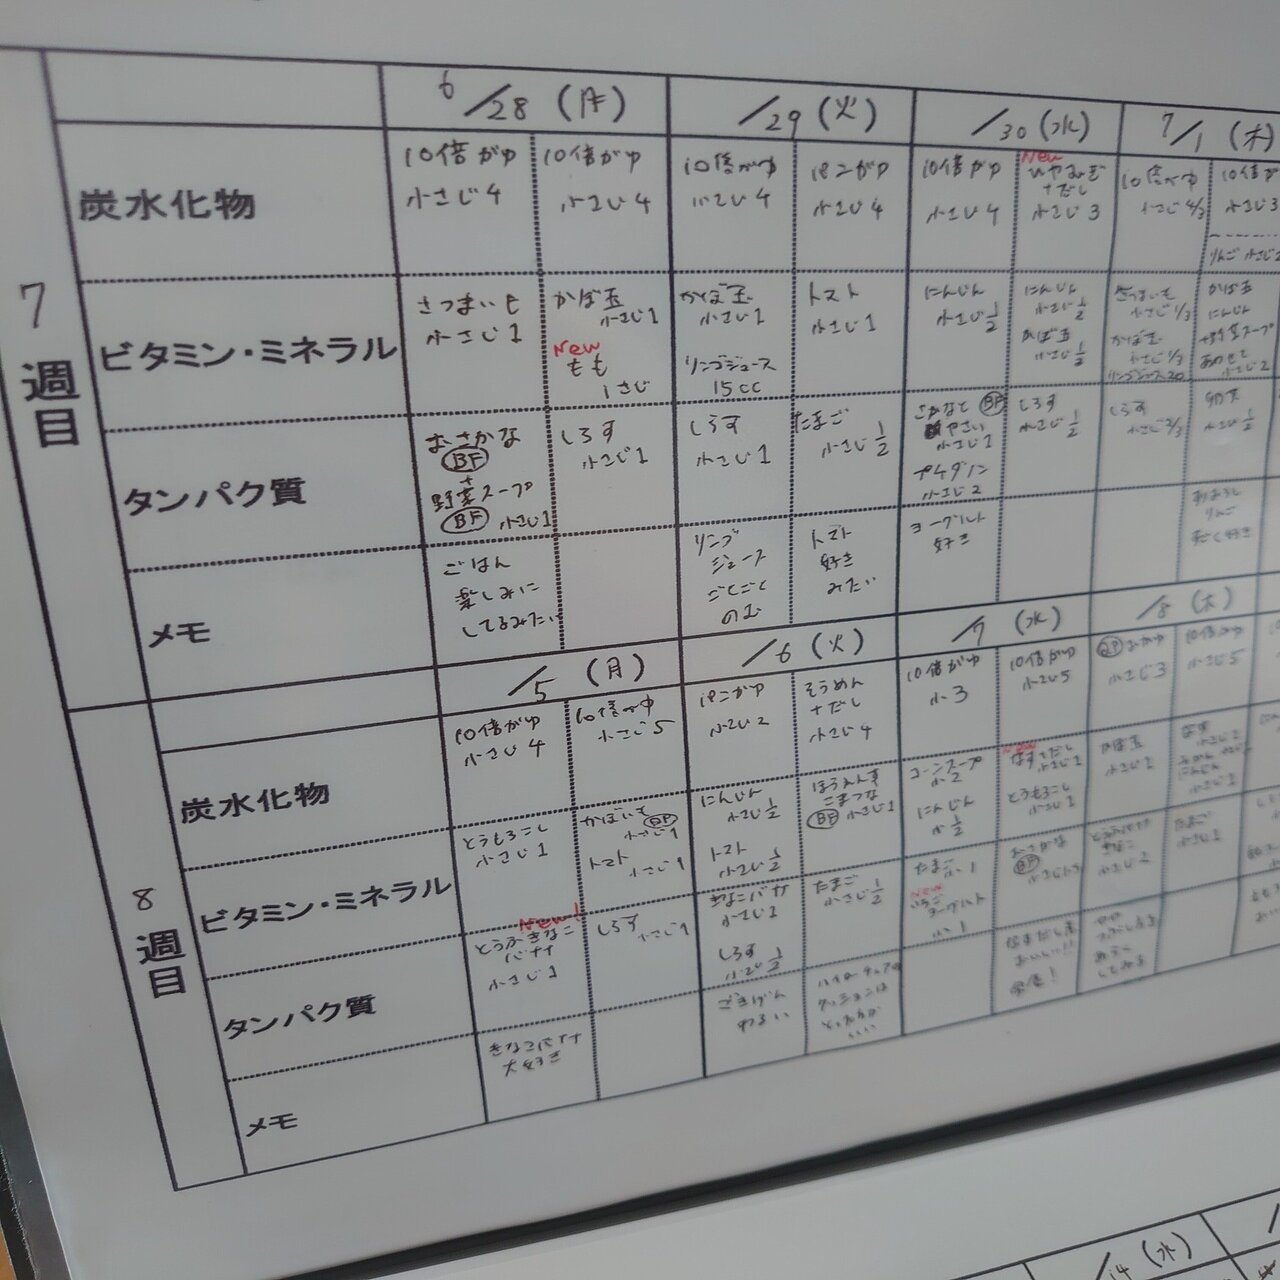 6/28(月)
/29(火)
/30(水)
7/1(木)
7週目
炭水化物
10倍がゆ
小さじ4
10倍がゆ
小さじ4
10倍がゆ
小さじ4
パンがゆ
小さじ4
10倍がゆ
小さじ4
New
ひやむぎ
+だし
小さじ3
10倍がゆ
小さじ4/3
10倍が
小さじ3
りんご 小さじ2
ビタミン・ミネラル
さつまいも
小さじ1
かぼ玉
小さじ1
New
もも
1さじ
かぼ玉
小さじ1
リンゴジュース
15cc
トマト
小さじ1
にんじん
小さじ1/2
にんじん
小さじ1/2
かぼ玉
小さじ1/2
さつまいも
小さじ1/3
かぼ玉
小さじ1/3
リンゴジュース20
かぼ玉
にんじん
+野菜スープ
あわせて
小さじ2
タンパク質
おさかな
BF
+
野菜スープ
BF 小さじ1
しらす
小さじ1
しらす
小さじ1
たまご
小さじ1/2
さかなと BF
やさい
小さじ1
プチダノン
小さじ2
しらす
小さじ1/2
しらす
小さじ2/3
小さじ1/2
メモ
ごはん
楽しみに
してるみたい
リンゴ
ジュース
ごくごく
のむ
トマト
好き
みたい
ヨーグルト
好き
りんご
/5(月)
/6(火)
/7(水)
/8(木)
8週目
炭水化物
10倍がゆ
小さじ4
10倍がゆ
小さじ5
パンがゆ
小さじ2
そうめん
+だし
小さじ4
10倍がゆ
小3
10倍がゆ
小さじ5
おかゆ
小さじ3
10倍がゆ
小さじ5
ビタミン・ミネラル
とうもろこし
小さじ1
かぼいも
BF
小さじ1
トマト
小さじ1
にんじん
小さじ1/2
トマト
小さじ1/2
ほうれん草
こまつな
BF 小さじ1
コーンスープ
小2
にんじん
小1/2
New
なす+だし
小さじ1
とうもろこし
小さじ1
かぼ玉
小さじ2
にんじん
小さじ1
タンパク質
New!
とうふきなこ
バナナ
小さじ1
しらす
小さじ1
きなこバナナ
小さじ1
しらす
小さじ1/2
たまご
小さじ1/2
たまご 小1
New
いちご
ヨーグルト
小1
おさかな
BF
きなこ
小さじ2
たまご
小さじ1
メモ
きなこバナナ
大好き
ごきげん
わるい
ハイローチェアの
クッションは
とった方が
いい
なすだし煮
おいしい!!
完食!
/14(水)